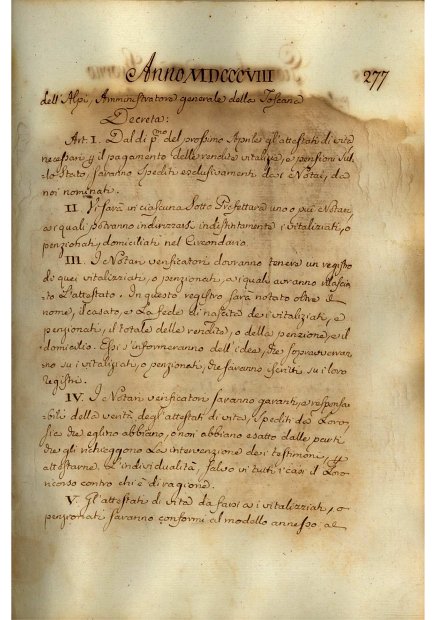 Anno MDCCCVIII 277
dell'Alpi, Amministratore generale della Toscana
Decreta:
Art. I. Dal dì p.mo del prossimo Aprile gl'attestati di vita
necessari p il pagamento delle rendite vitalizie, e pensioni sul-
lo Stato, saranno spediti esclusivamente dai Notai, da
noi nominati.
II. Vi sarà in ciascuna Sotto Prefettura uno o più Notari
a i quali potranno indirizzarsi indistintamente i vitaliziati, o
pensionati, domiciliati nel Circondario.
III. I Notari verificatori dovranno tenere un registro
di quei vitalizziati, o pensionati, a i quali avranno rilascia-
to l'attestato. In questo registro sarà notato oltre il
nome, il casato, e la fede di nascita dei vitaliziati, e
pensionati, il totale delle rendite, o della pensione, e il
domicilio. Essi s'informeranno dell'idee, che sopravverran-
no su i vitaliziati, o pensionati, che saranno iscritti su i loro
registri.
IV. I Notari verificatori saranno garanti, e responsa-
bili della verità degl'attestati di vita, spediti da loro,
sia che eglino abbiano, o non abbiano esatto dalle parti
che gli richieggono la intervenzione dei testimoni, p
attestarne l'individualità, salvo in tutti i casi il loro
ricorso contro chi è di ragione.
V. Gl'attestati di vita da farsi a i vitalizziati, o
pensionati saranno conformi al modello annesso, al